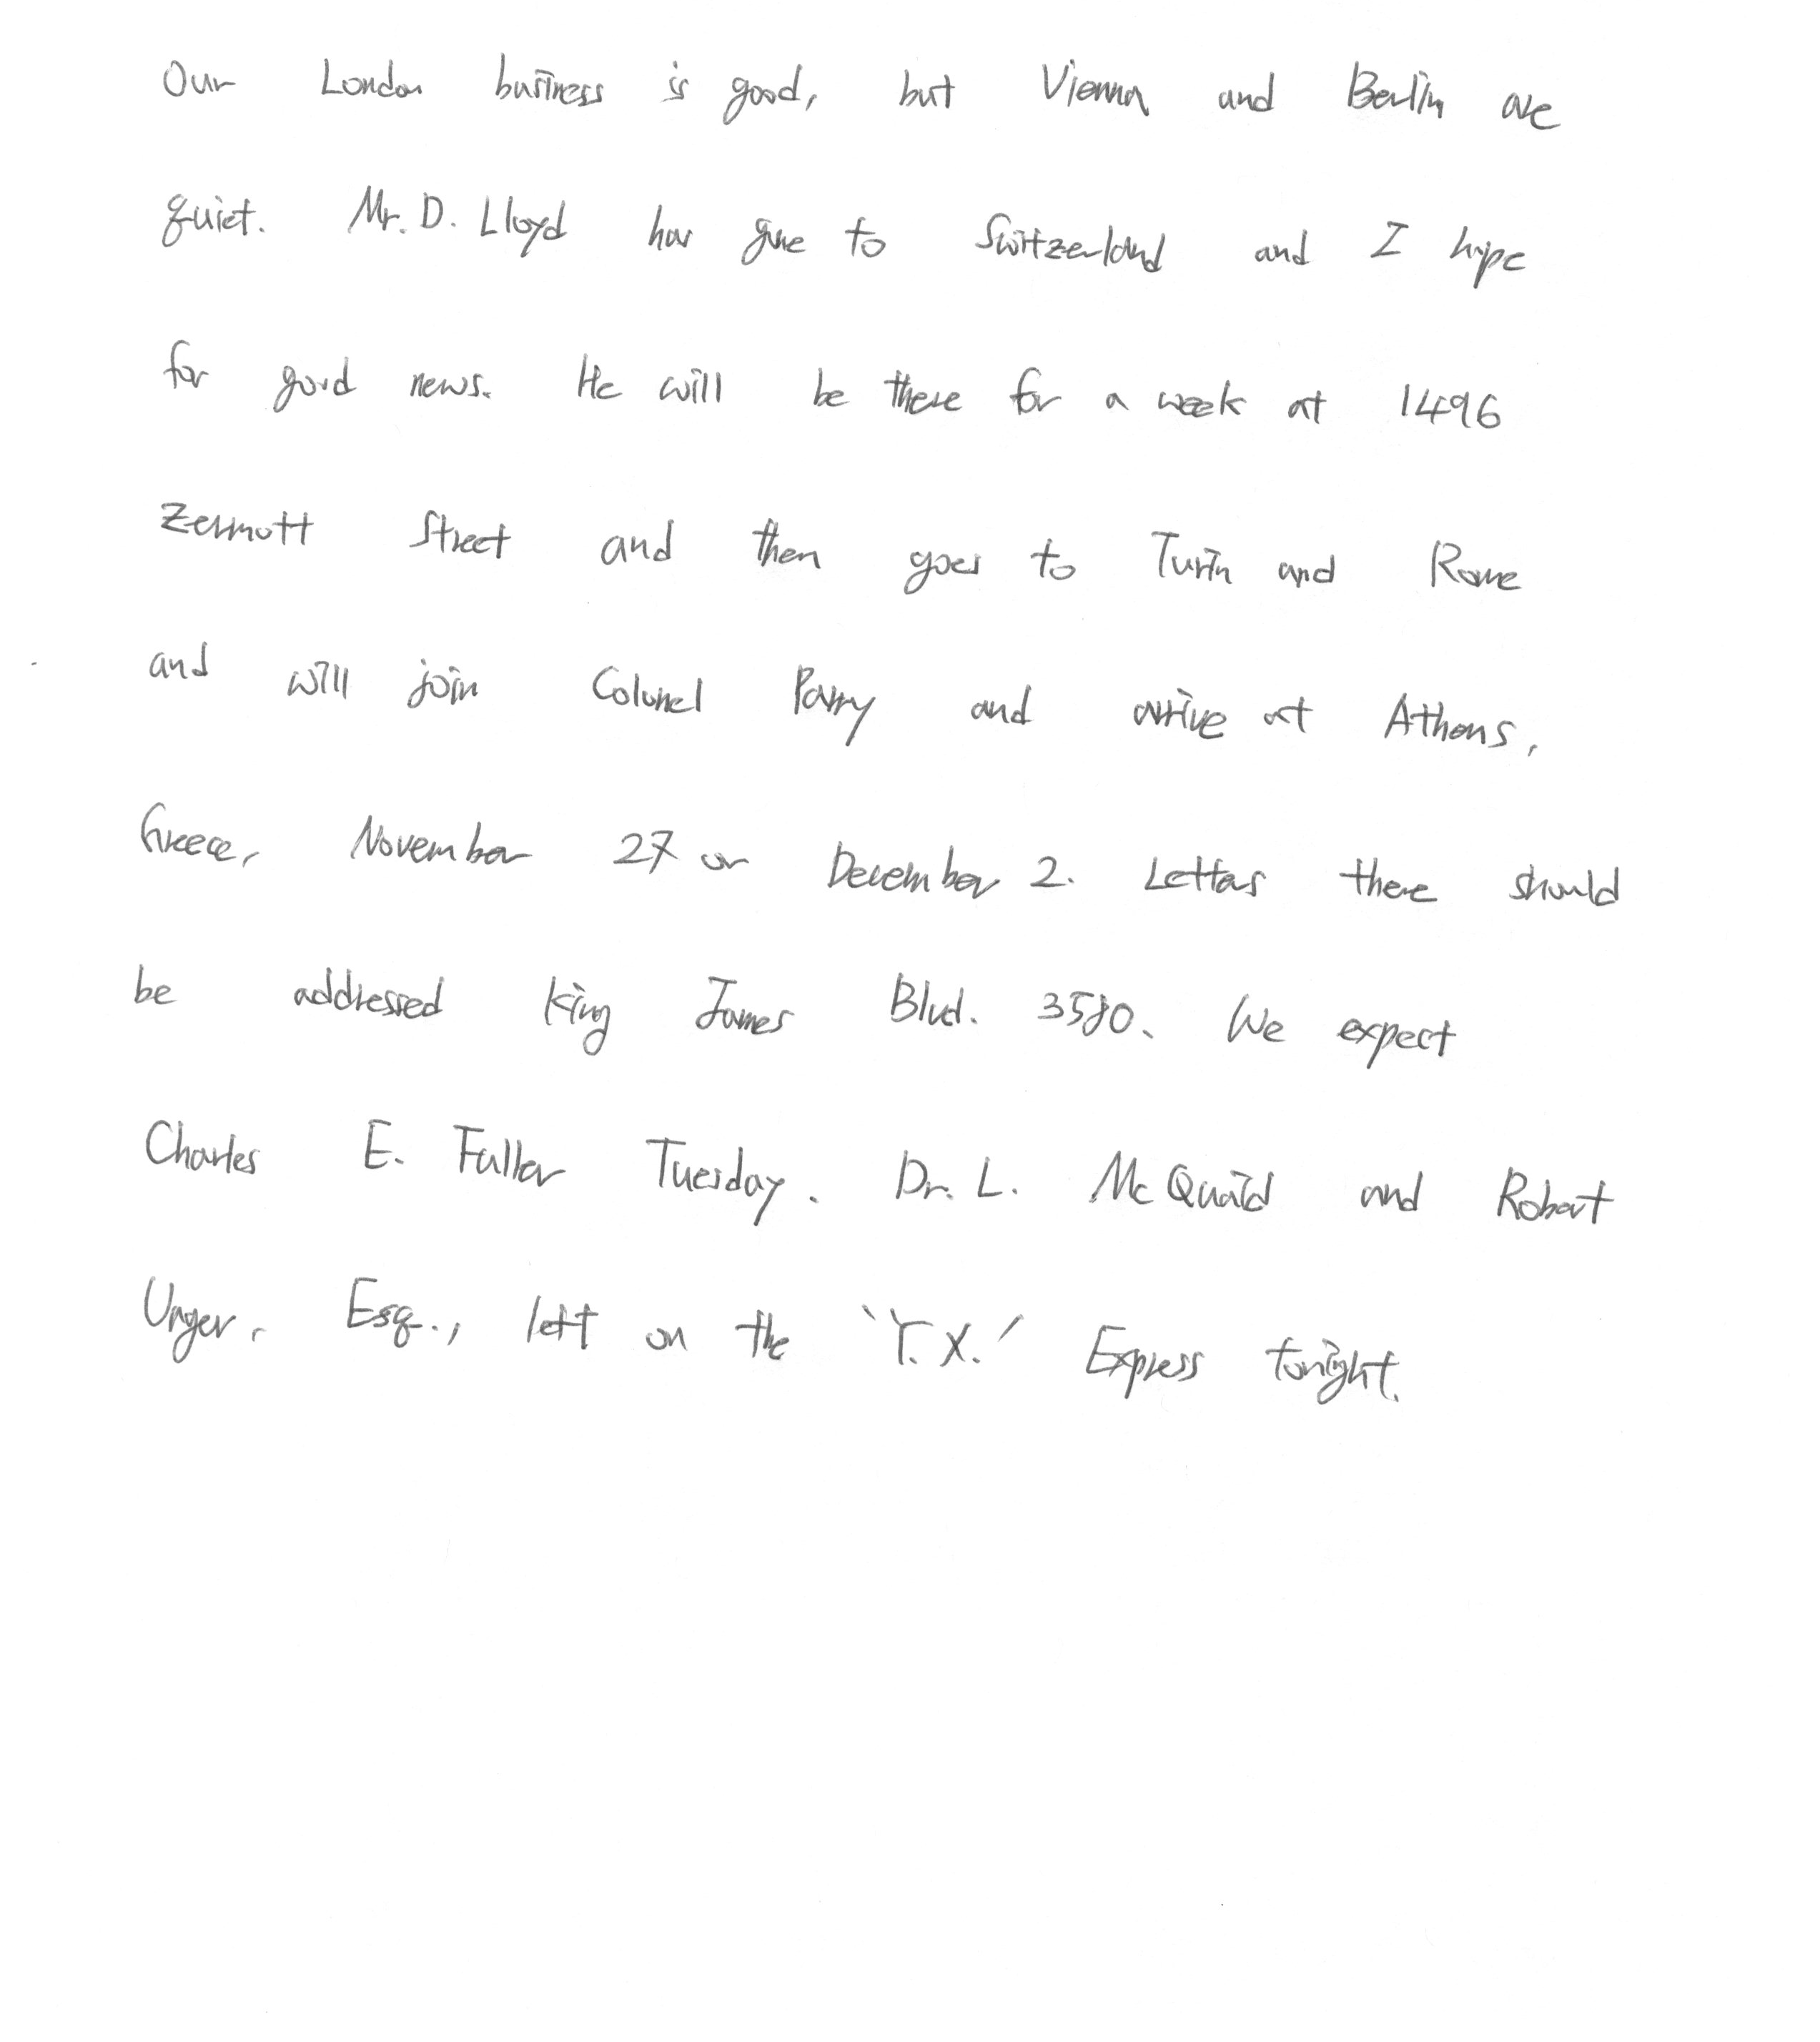 Our London business is good, but Vienna and Berlin are
quiet. Mr. D. Lloyd has gone to Switzerland and I hope
for good news. He will be there for a week at 1496
Zermott Street and then goes to Turin and Rome
and will join Colonel Parry and arrive at Athens,
Greece, November 27 or December 2. Letters there should
be addressed King James Blvd. 3580. We expect
Charles E. Fuller Tuesday. Dr. L. McQuaid and Robert
Unger, Esq., left on the 'Y.X.' Express tonight.